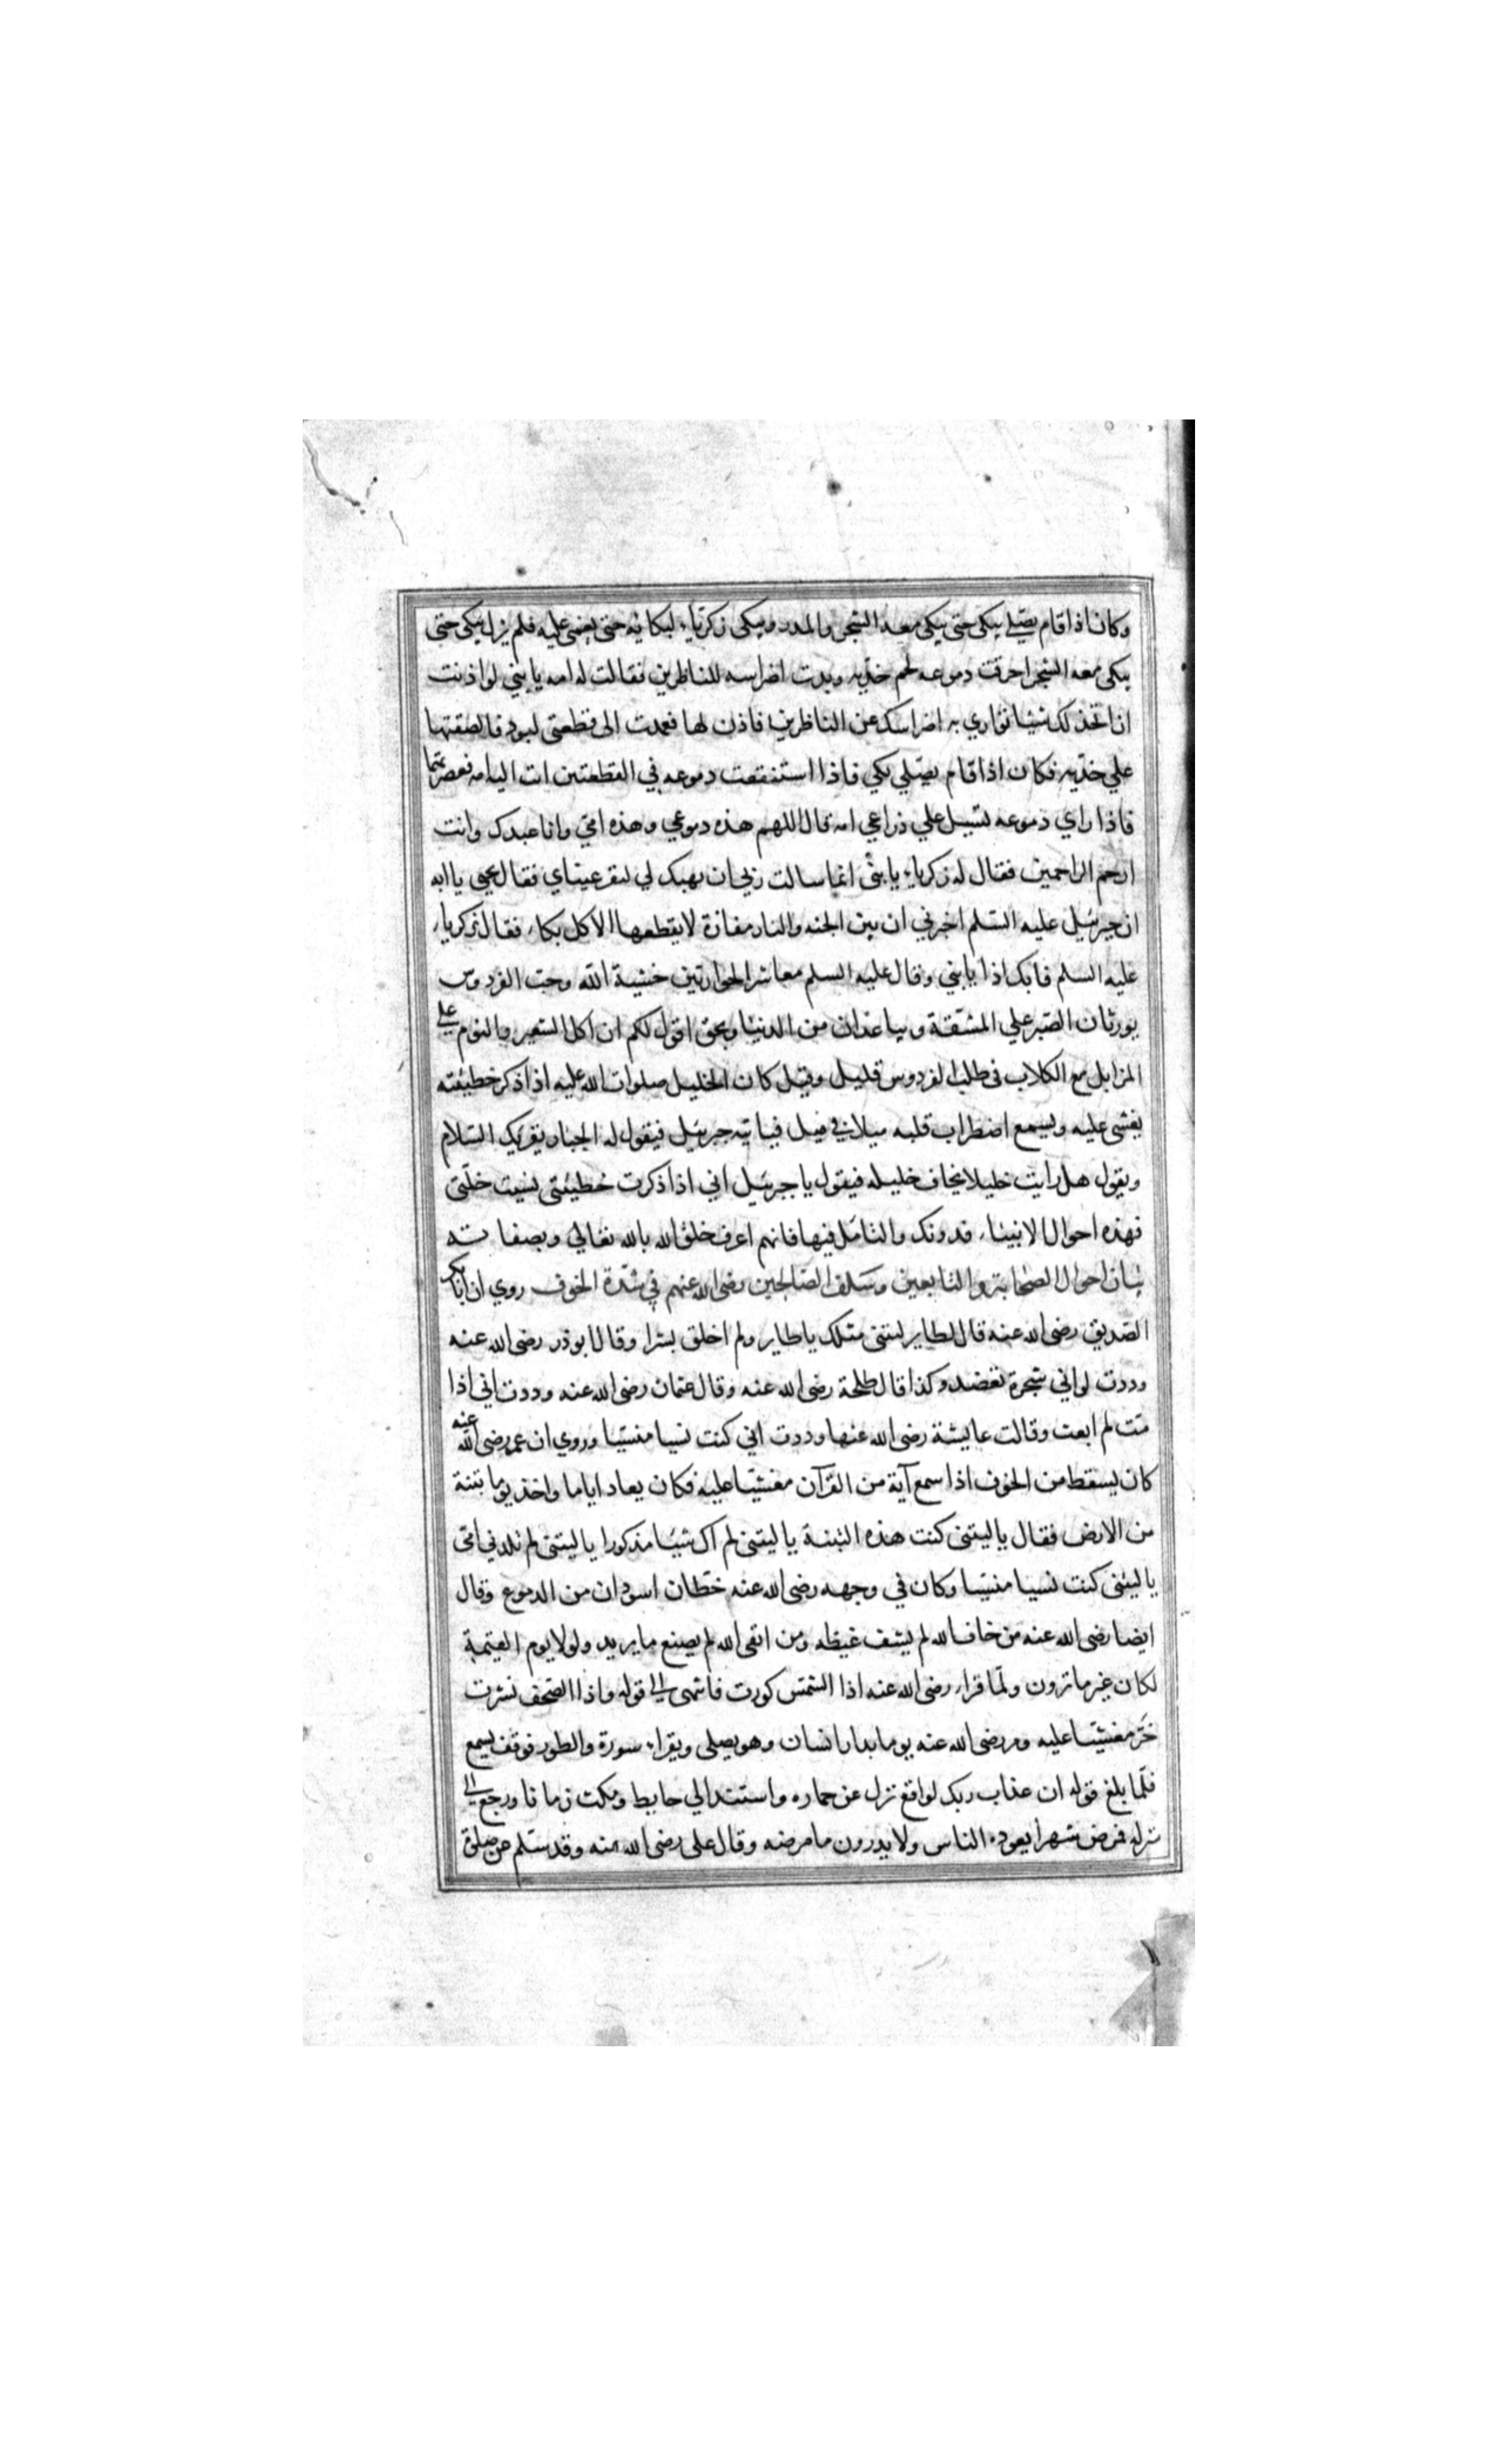 وكان اذا قام يصلي يبكي حتى يبكي معه الشجر والمدر ويبكى زكريا لبكائه حتى يغمى عليه فلم يزل يبكى حتى
يبكى معه الشجر احرقت دموعه لحم خدّيه وبدت اضراسه للناظرين فقالت له امه يا بني لو اذنت
ان اتخذ لك شيئا تواري به اضراسك عن الناظرين فاذن لها فعمدت الى قطعتى لبود فالصقتها
علي خدّيه فكان اذا قام يصلي بكي فاذا استنقعت دموعه في القطعتين اتت اليه امه فعصرتهما
فاذا راي دموعه تسيل علي ذراعي امه قال اللهم هذه دموعي وهذه امّي وانا عبدك وانت
ارحم الراحمين فقال له زكرياء يا بنى انما سالت ربي ان يهبك لي لتقر عيناي فقال يحيى يا ابه
ان جبرئيل عليه السلم اخبرني ان بين الجنه والنار مفازة لا يقطعها الا كل بكاء فقال زكرياء
عليه السلم فابك اذا يا بني وقال عليه السلم معاشر الحواريين خشية الله وحب الفردوس
يورثان الصّبر علي المشقة ويباعدان من الدنيا وبحق اقول لكم ان اكل الشعير والنوم علي
المزابل مع الكلاب في طلب الفردوس قليل وقيل كان الخليل صلوات الله عليه اذا ذكر خطيئته
يغشى عليه ويسمع اضطراب قلبه ميلا في ميل فياتيه جبرئيل فيقول له الجبار يقريك السّلام
ويقول هل رايت خليلا يخاف خليله فيقول يا جبرئيل اني اذا ذكرت خطيئتى نسيت خلّتى
فهذه احوال الانبياء فدونك والتامّل فيها فانهم اعرف خلق الله بالله تعالي وبصفاته
بيان احوال الصّحابة والتابعين وسلف الصّالحين رضى الله عنهم في شدّة الخوف روي ان ابا بكر
الصّديق رضى الله عنه قال لطاير ليتنى مثلك يا طاير ولم اخلق بشرا وقال ابو ذر رضى الله عنه
وددت لو اني شجرة تعضد وكذا قال طلحة رضى الله عنه وقال عثمان رضى الله عنه وددت اني اذا
متّ لم ابعث وقالت عايشة رضى الله عنها وددت اني كنت نسيا منسيّا وروي ان عمر رضى الله عنه
كان يسقط من الخوف اذا سمع آية من القرآن مغشيّا عليه فكان يعاد اياما واخذ يوما تبنة
من الارض فقال يا ليتنى كنت هذه التبنة يا ليتنى لم اك شيئا مذكورا يا ليتنى لم تلدني امّى
يا ليتنى كنت نسيا منسيّا وكان في وجهه رضى الله عنه خطّان اسودان من الدموع وقال
ايضا رضى الله عنه من خاف الله لم يشف غيظه ومن اتقى الله لم يصنع ما يريد ولولا يوم القيمة
لكان غير ما ترون ولمّا قراء رضى الله عنه اذا الشمس كورت فانتهى الى قوله واذا الصّحف نشرت
خرّ مغشيّا عليه ومر رضى الله عنه يوما بدار انسان وهو يصلى ويقراء سورة والطور فوقف يسمع
فلمّا بلغ قوله ان عذاب ربك لواقع نزل عن حماره واستند الي حايط ومكث زمانا ورجع الى
منزله فمرض شهرا يعوده الناس ولا يدرون ما مرضه وقال على رضى الله عنه وقد سلّم عن صلوة